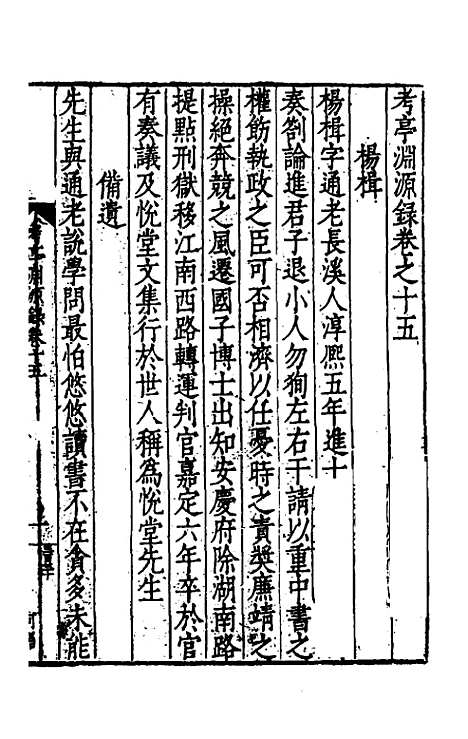 考亭淵源錄卷之十五
楊楫
楊楫字通老長溪人淳熙五年進十
奏劄論進君子退小人勿狥左右干請以重中書之
權飭執政之臣可否相濟以任憂時之責奬廉靖之
操絕奔競之風遷國子博士出知安慶府除湖南路
提點刑獄移江南西路轉運判官嘉定六年卒於官
有奏議及悅堂文集行於世人稱為悅堂先生
備遺
先生與通老說學問最怕悠悠讀書不在貪多未能
考亭淵源錄卷十五